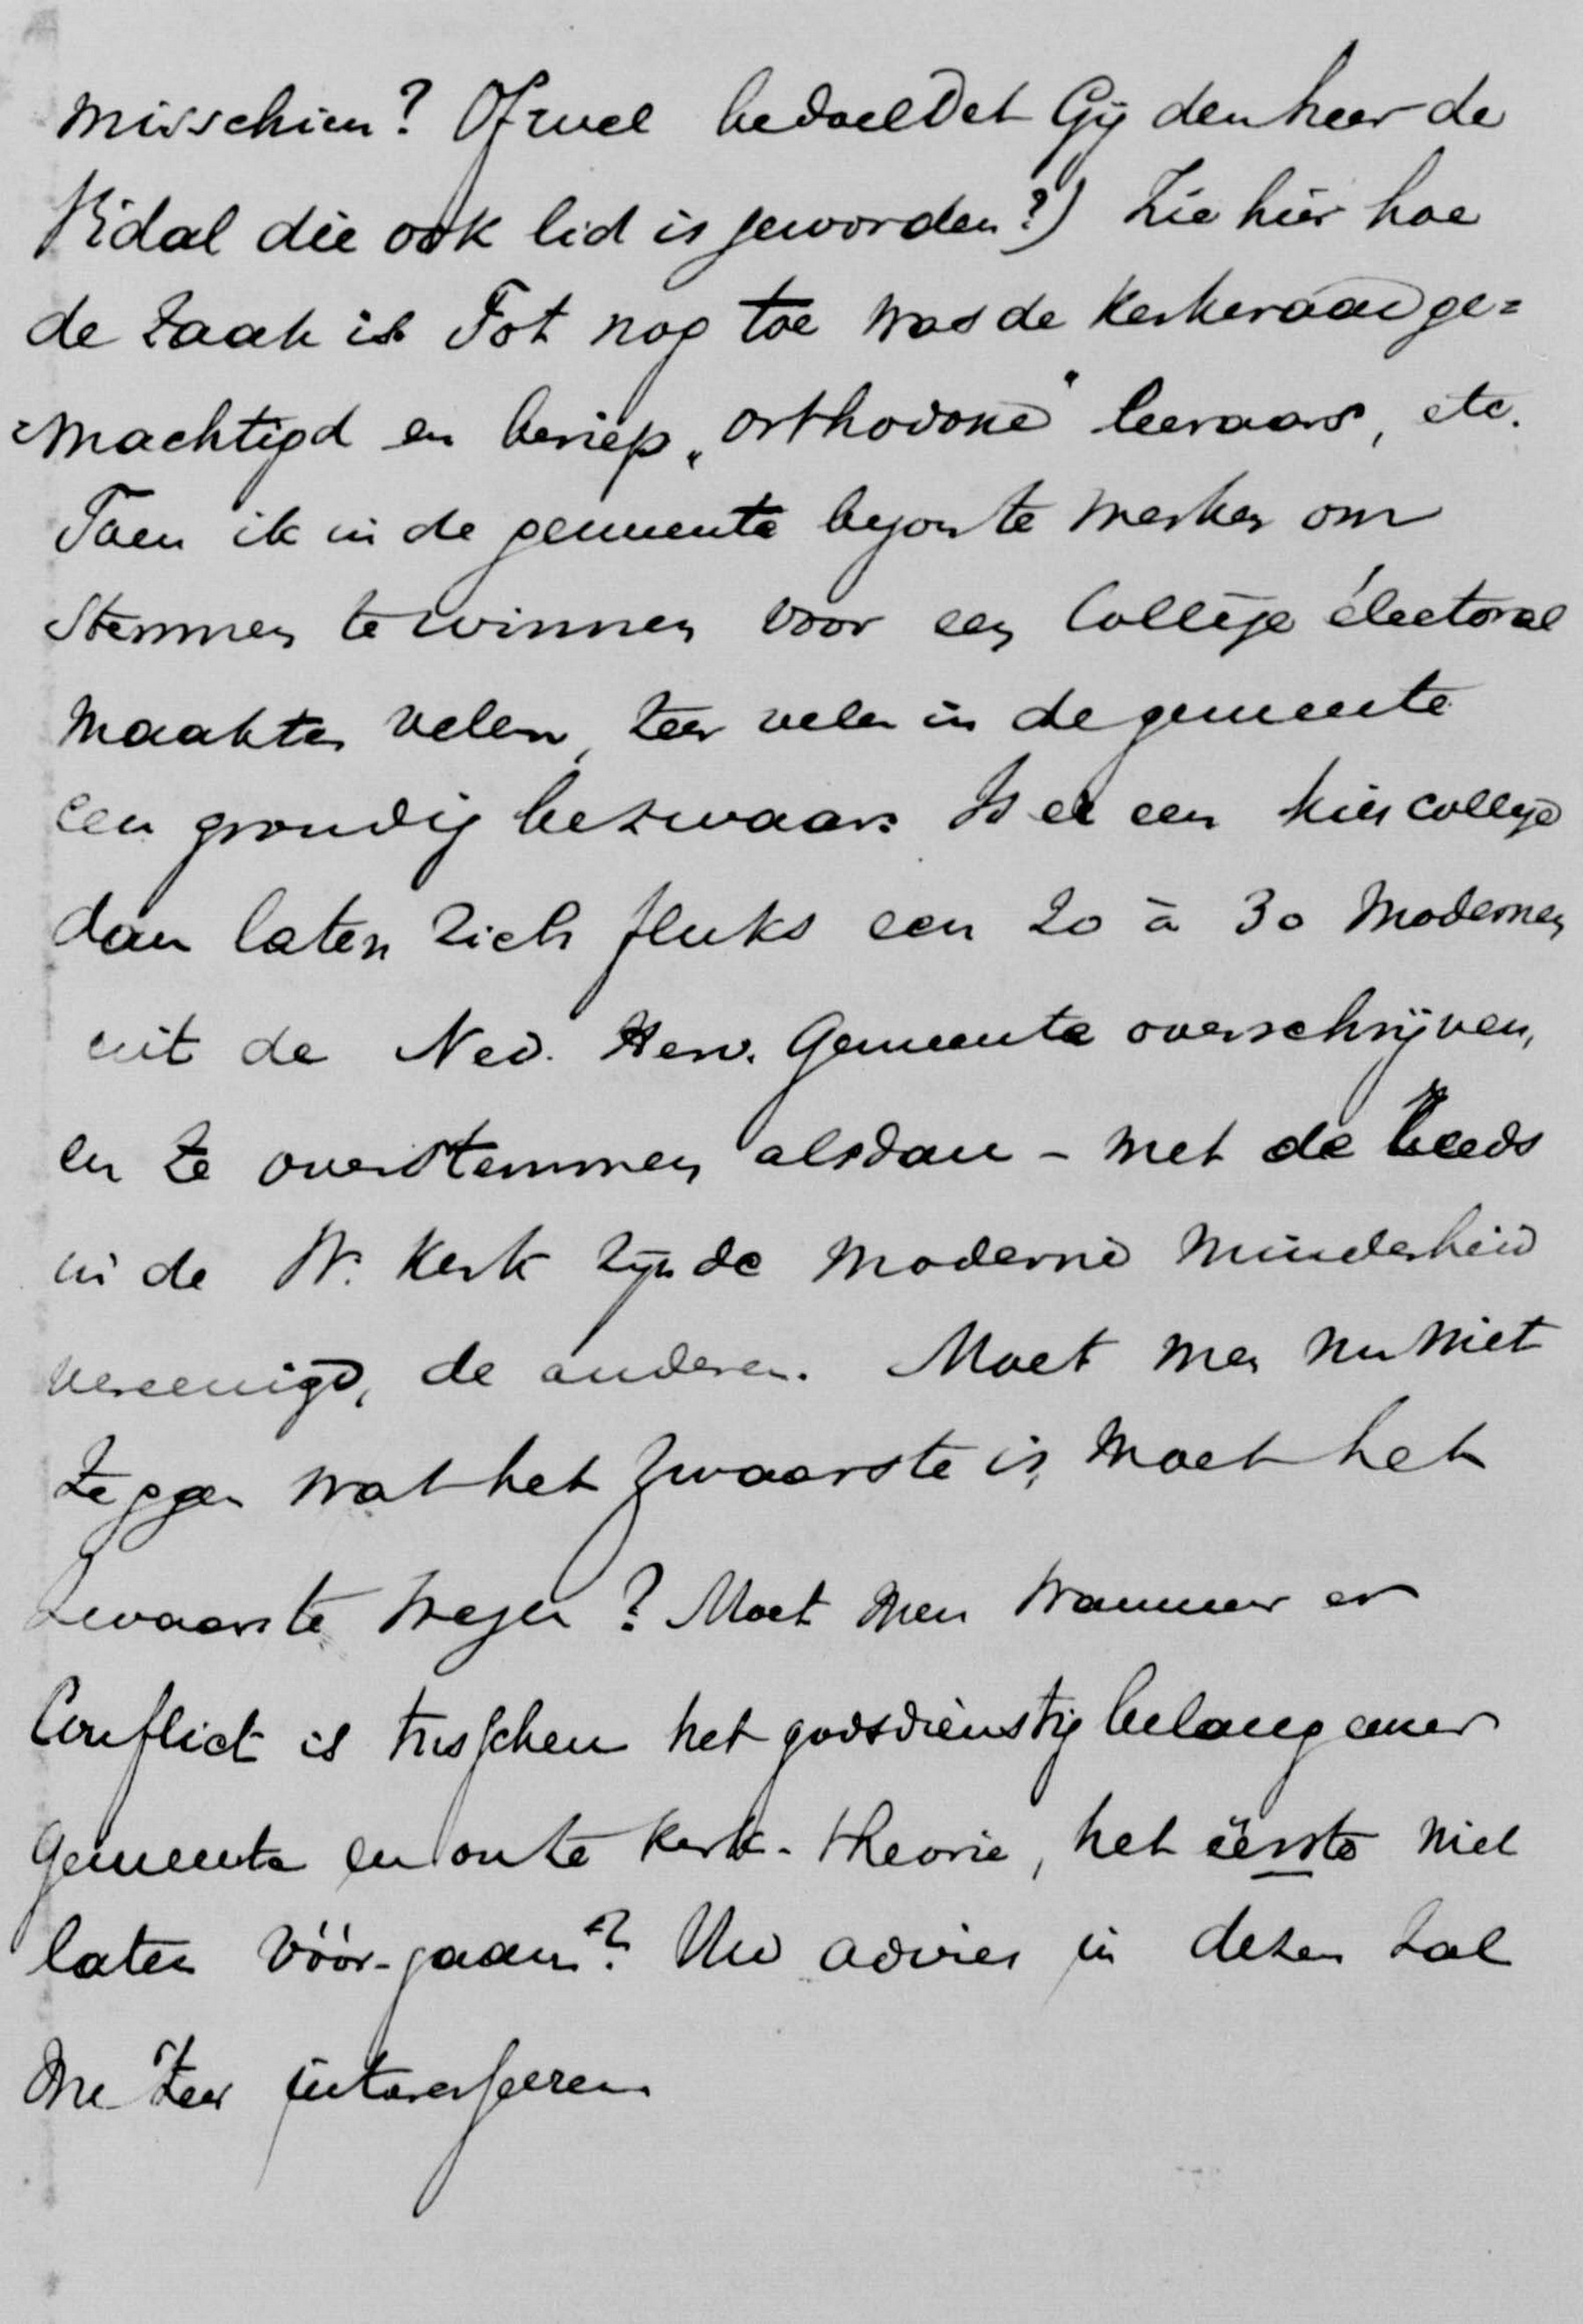 misschien? Ofwel bedoeldet Gij den heer de
Vidal die ook lid is geworden?) Zie hier hoe
de zaak is Tot nog toe was de Kerkeraad ge=
=machtigd en beriep „orthodoxe" leeraars, etc.
Toen ik in de gemeente begon te werken om
Stemmen te winnen voor een Collège électoral
maakten velen, zeer velen in de gemeente
een grondig bezwaar. Is er een kiescollege
dan laten zich fluks een 20 à 30 Modernen
uit de Ned. Herv. Gemeente overschrijven,
en ze overstemmen alsdan – met de reeds
in de W. Kerk zijnde Moderne Minderheid
vereenigd, de anderen. Moet men nu niet
zeggen wat het zwaarste is, moet het
zwaarste wegen? Moet men wanneer er
Conflict is tusschen het godsdienstig belang eener
Gemeente en onze Kerk-theorie, het eerste niet
laten vóór-gaan? Uw advies in dezen zal
me zeer interesseeren